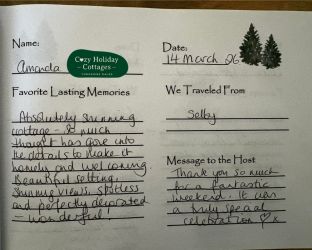 Name:
Amanda
Cozy Holiday
Cottages
YORKSHIRE DALES
Favorite Lasting Memories
Absolutely stunning
cottage - so much
thought has gone into
the details to make it
homely and welcoming.
Beautiful setting.
Stunning views, spotless
and perfectly decorated
- wonderful!
Date:
14 March 26
We Traveled From
Selby
Message to the Host
Thank you so much
for a fantastic
weekend. It was
a truly special
celebration ♡ x